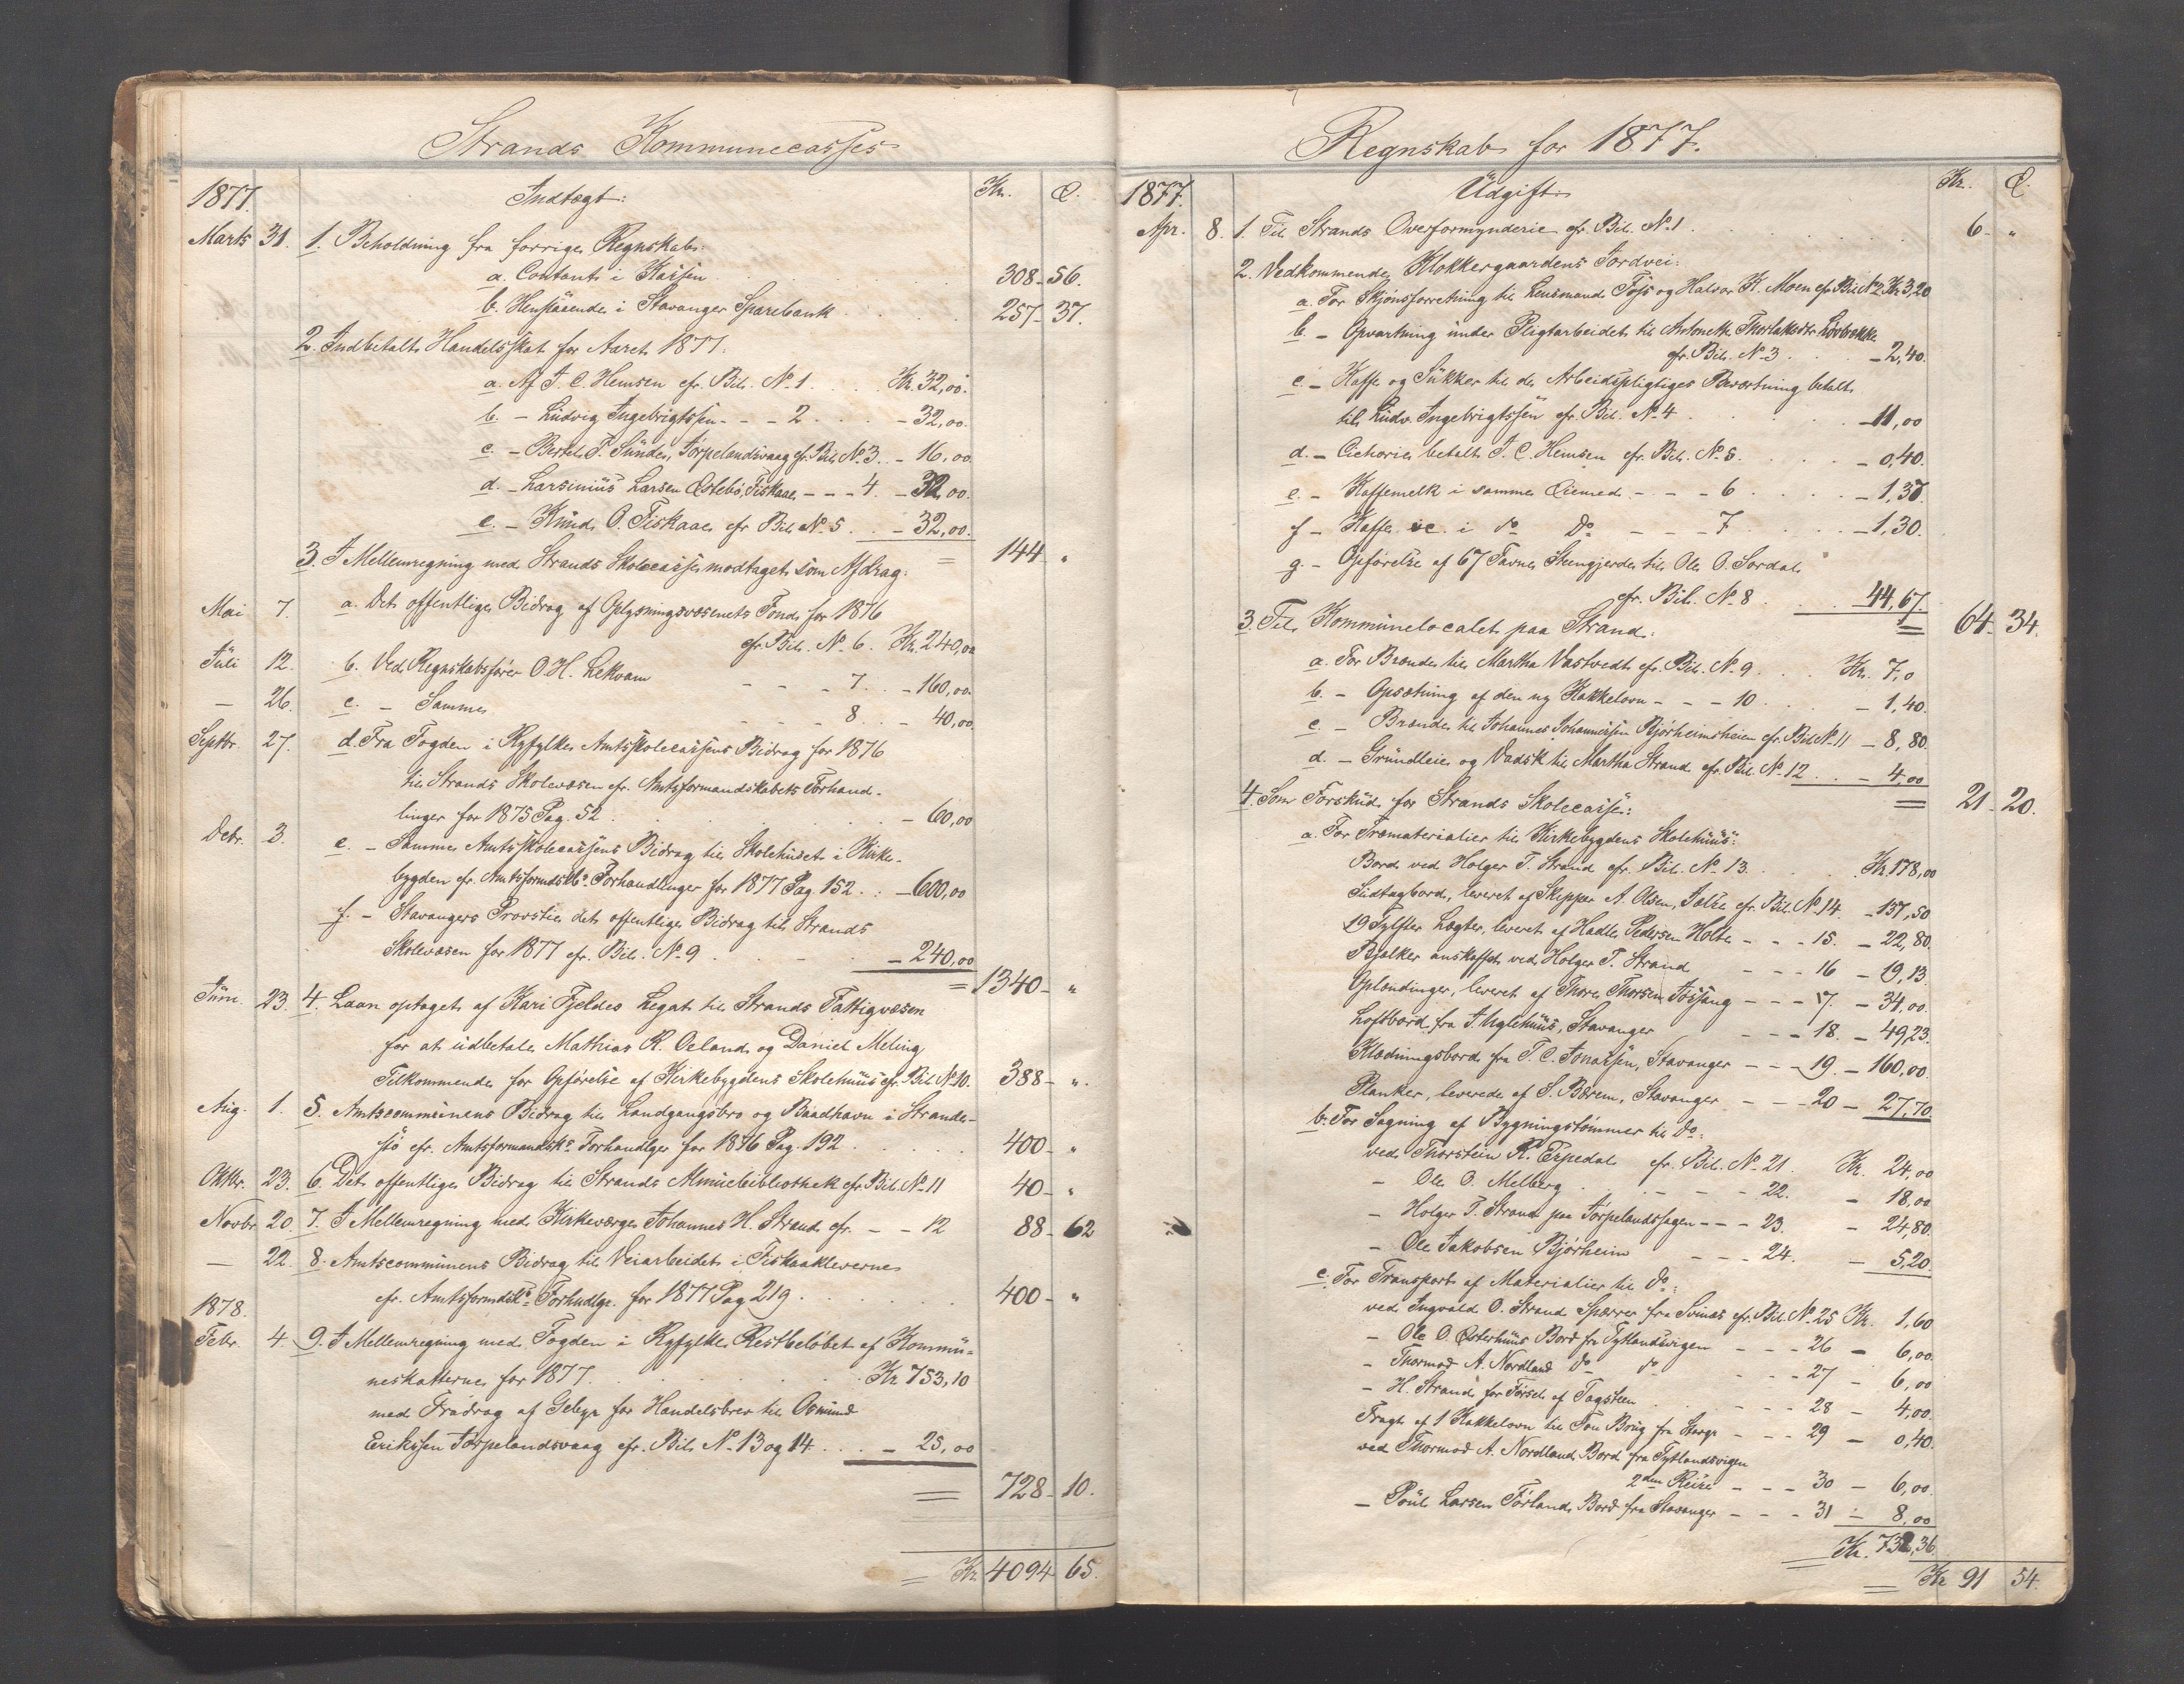 Strands Kommunecasses
1877. Indtægt: Kr. Ø.
Marts 31. 1. Beholdning fra forrige Regnskab:
a. Contant i Kassen . . . 308 - 56.
b. Henstaaende i Stavanger Sparebank . . . 257 - 37.
2. Indbetalt Handelsskat for Aaret 1877:
a. Af J. C. Hemsen cfr. Bil. No. 1 . . . Kr. 32,00.
b. - Ludvig Ingebrigtssen - - - 2 . . . - 32,00.
c. - Bertel P. Sunde, Tørpelandsvaag cfr. Bil. No. 3 . . - 16,00.
d. - Larsinius Larsen Østebø, Fiskaae - - - 4. - 32,00.
e. - Knud O. Fiskaae cfr. Bil. No. 5 . . - 32,00.
= 144 "
3. I Mellemregning med Strands Skolecasse modtaget som Afdrag:
Mai 7. a. Det offentlige Bidrag af Oplysningsvæsenets Fond for 1876
cfr. Bil. No. 6. Kr. 240,00
Juli 12. b. Ved Regnskabsfører O. H. Lekvam - - - 7 . . - 160,00.
- 26. c. - Samme - - - 8 . . - 40,00.
Septbr. 27. d. Fra Fogden i Ryfylke Amtsskolecassens Bidrag for 1876
til Strands Skolevæsen cfr. Amtsformandskabets Forhand-
linger for 1875 Pag. 52 . . . - 60,00
Debr. 3. e. - Samme Amtsskolecassens Bidrag til Skolehuset i Kirke-
bygden cfr. Amtsformdskbs Forhandlinger for 1877 Pag. 152 . : - 600,00
f. - Stavangers Provstie det offentlige Bidrag til Strands
Skolevæsen for 1877 cfr. Bil. No. 9 . . . - 240,00
= 1340 - "
Juni. 23. 4. Laan optaget af Kari Fjeldes Legat til Strands Fattigvæsen
for at udbetale Mathias R. Øeland og Daniel Meling
Tilkommende for Opførelse af Kirkebygdens Skolehuus cfr. Bil. No. 10. 388 - ".
Aug. 1. 5. Amtscommunens Bidrag til Landgangsbro og Baadhavn i Strande-
sjø cfr. Amtsformandsks Forhandlger for 1876 Pag. 192 . . . 400 - "
Oktbr. 23. 6. Det offentlige Bidrag til Strands Almuebibliothek cfr. Bil. No. 11 40 - "
Novbr. 20. 7. I Mellemregning med Kirkeværge Johannes H. Strand cfr. - - 12 88 - 62
- 22. 8. Amtscommunens Bidrag til Veiarbeidet i Fiskaakleverne
cfr. Amtsformdsks Forhndlgr. for 1877 Pag 219 . . . 400 - "
1878.
Febr. 4. 9. I Mellemregning med Fogden i Ryfylke Restbeløbet af Kommu-
neskatterne for 1877. . . . Kr 753,10
med Fradrag af Gebyr for Handelsbrev til Osmund
Erikssen Tørpelandsvaag cfr. Bil. No. 13 og 14 . . . - 25,00
= 728 - 10.
= Kr. 4094 65.
Regnskab for 1877.
1877. Udgift: Kr. Ø.
Apr. 8. 1. Til Strands Overformynderie cfr. Bil. No. 1 . . . 6 - "
2. Vedkommende Klokkergaardens Jordvei:
a. For Skjønsforretning til Lensmand Tøjs og Halvor K. Moen cfr Bil No 2 Kr 3,20
b. - Opvartning under Pligtarbeidet til Antonette Thorlaksdtr.
cfr. Bil. No. 3 . . . - 2,40.
c. - Kaffe og Sukker til de Arbeidspligtiges Bevertning betalt
til Ludv. Ingebrigtssen cfr. Bil. No. 4 . . . - 11,00
d. - Cichorie betalt J. C. Hemsen cfr. Bil. No. 5. . . . - 0,40.
e. - Kaffemelk i samme Øiemed - - - 6 . . . - 1,37.
f - Kaffe &c. i do Do - - - 7 . . . - 1,30.
g. - Opførelse af 67 Favne Steengjerde til Ole O. Sørdal
cfr. Bil. No. 8 . . . 44,67.
= 64 - 34.
3. Til Kommunelocalet paa Strand:
a. For Brænde til Martha Vastvedt cfr. Bil. No. 9 . . . Kr. 7,0
b. - Opsætning af den ny Kakkelovn - - - 10 . . . - 1,40.
c. - Brænde til Johannes Johannessen Bjørheimsheien cfr. Bil. No. 11 - 8,80.
d. - Grundleie og Vadsk til Martha Strand cfr. Bil. No. 12 . . - 4,00
= 21 - 20.
4. Som Forskud for Strands Skolecasse:
a. For Træmaterialier til Kirkebygdens Skolehuus:
Bord ved Holger T. Strand cfr. Bil. No. 13. . . . Kr. 178,00
Sidtagbord, leveret af Skipper A. Olsen, Jælse cfr. Bil. No. 14. - 137,50
19 Tylfter Lægter, leveret af Hadle Pedersen Holta - - - 15. - 22,80.
Bjelker anskaffet ved Holger T. Strand - - - 16 - 19,13.
Oplændinger, leveret af Thore Thorsen Jøssang - - - 17. - 34,00.
Loftbord fra J. Uglehuus, Stavanger - - - 18. - 49,23.
Klædningsbord fra T. C. Jonassen, Stavanger - - - 19. - 160,00.
Planker, leverede af S. Bærem, Stavanger - - - 20 - 27,70.
b. For Sagning af Bygningstømmer til do:
ved Thorstein R. Erpedal cfr. Bil. No. 21. Kr. 24,00
- Ole O. Melberg . - - - 22. - 18,00
- Holger T. Strand paa Tørpelandssagen - - - 23. - 24,80.
- Ole Jakobsen Bjørheim - - - 24. - 5,20.
c. For Transport af Materialier til do:
ved Ingvald O. Strand Sperrer fra Svines cfr. Bil. No. 25 Kr. 1,60
- Ole O. Østerhuus Bord fra Tytlandsvigen - - - 26 - 6,00.
- Thormod A. Nordland do do - - - 27 - 6,00
- H. Strand for Førsel af Tagsteen . - - - 28 - 4,00.
Fragt af 1 Kakkelovn til Tou Brug fra Stavgr - - - 29 - 0,40.
ved Thormod A. Nordland Bord fra Tytlandsvigen
2den Reise - - - 30 - 6,00.
- Poul Larsen Førland Bord fra Stavanger - - - 31 - 8,00
= Kr. 732,36
= Kr 91 54.